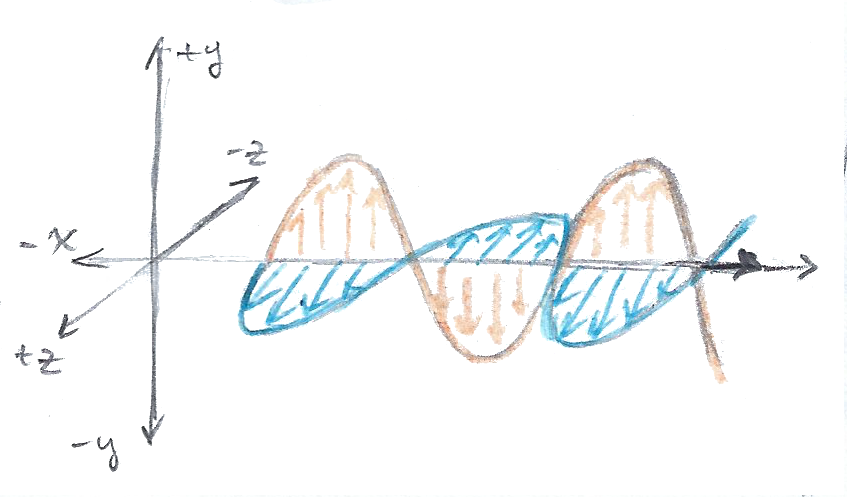 +y
-z
-x
+z
-y